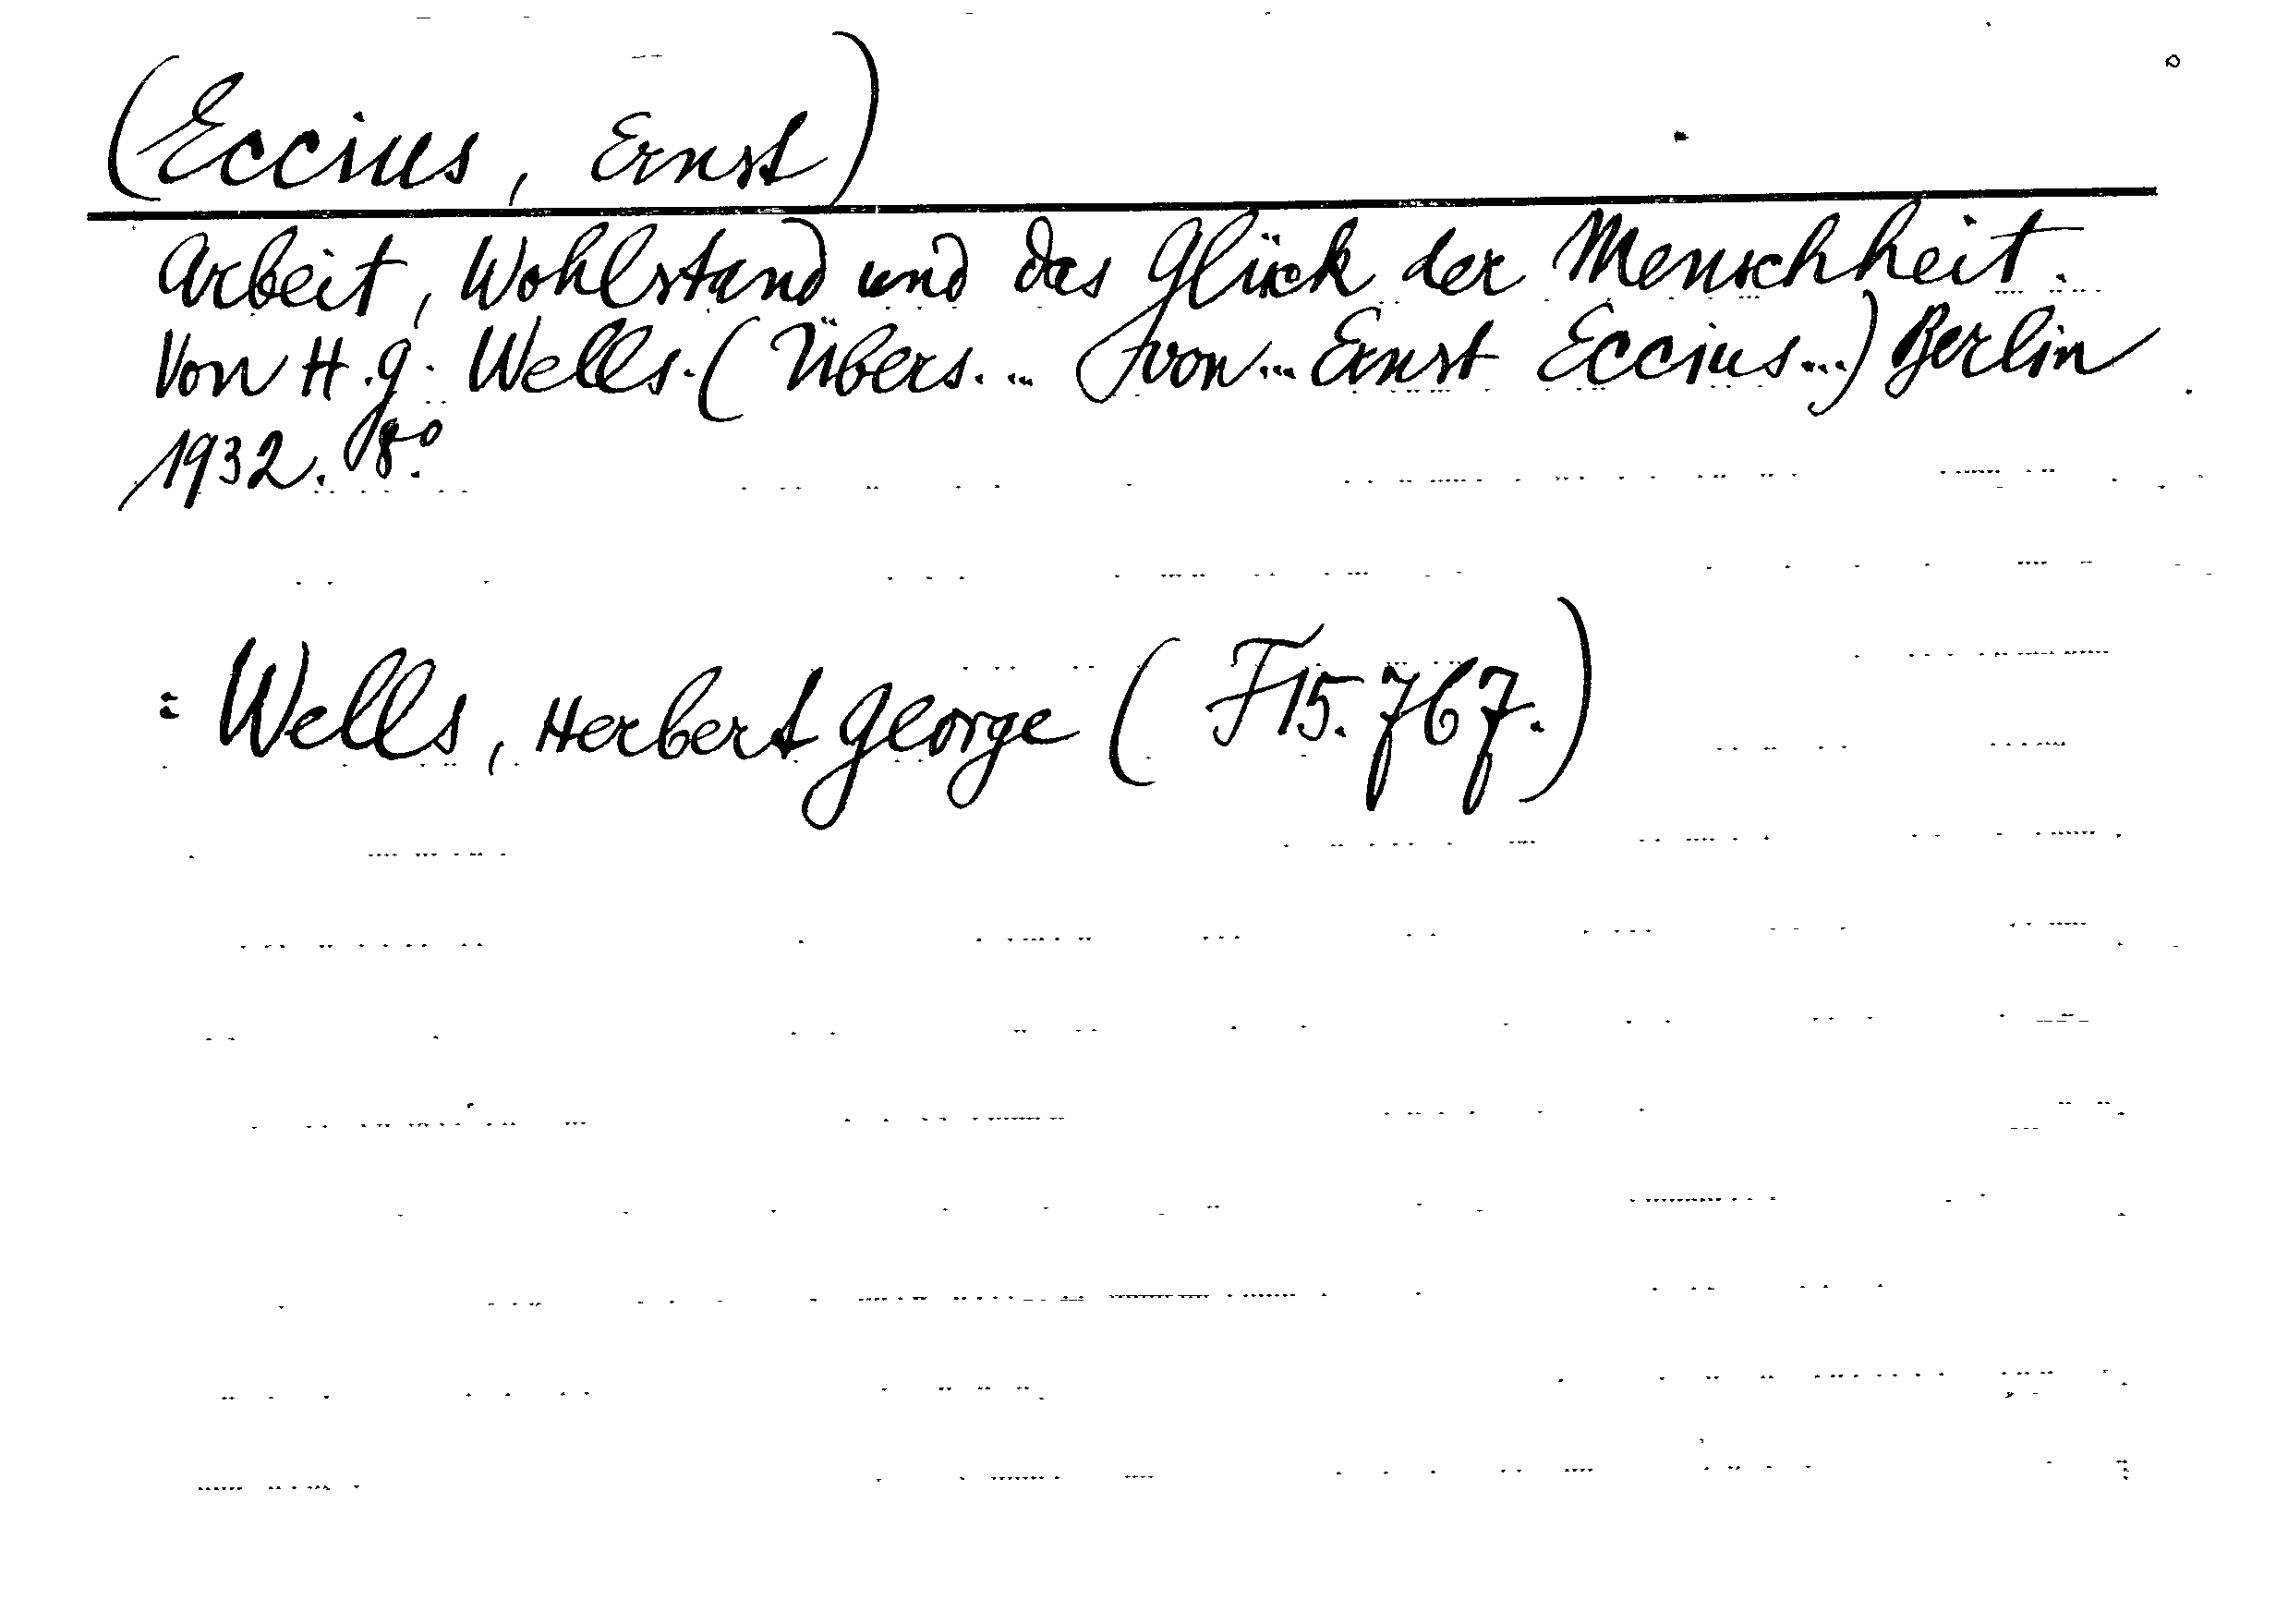 (Eccius, Ernst)
Arbeit, Wohlstand und das Glück der Menschheit.
Von H.G. Wells. (Übers. ... von ... Ernst Eccius ...) Berlin
1932. 8°.
= Wells, Herbert George (F15.767.)